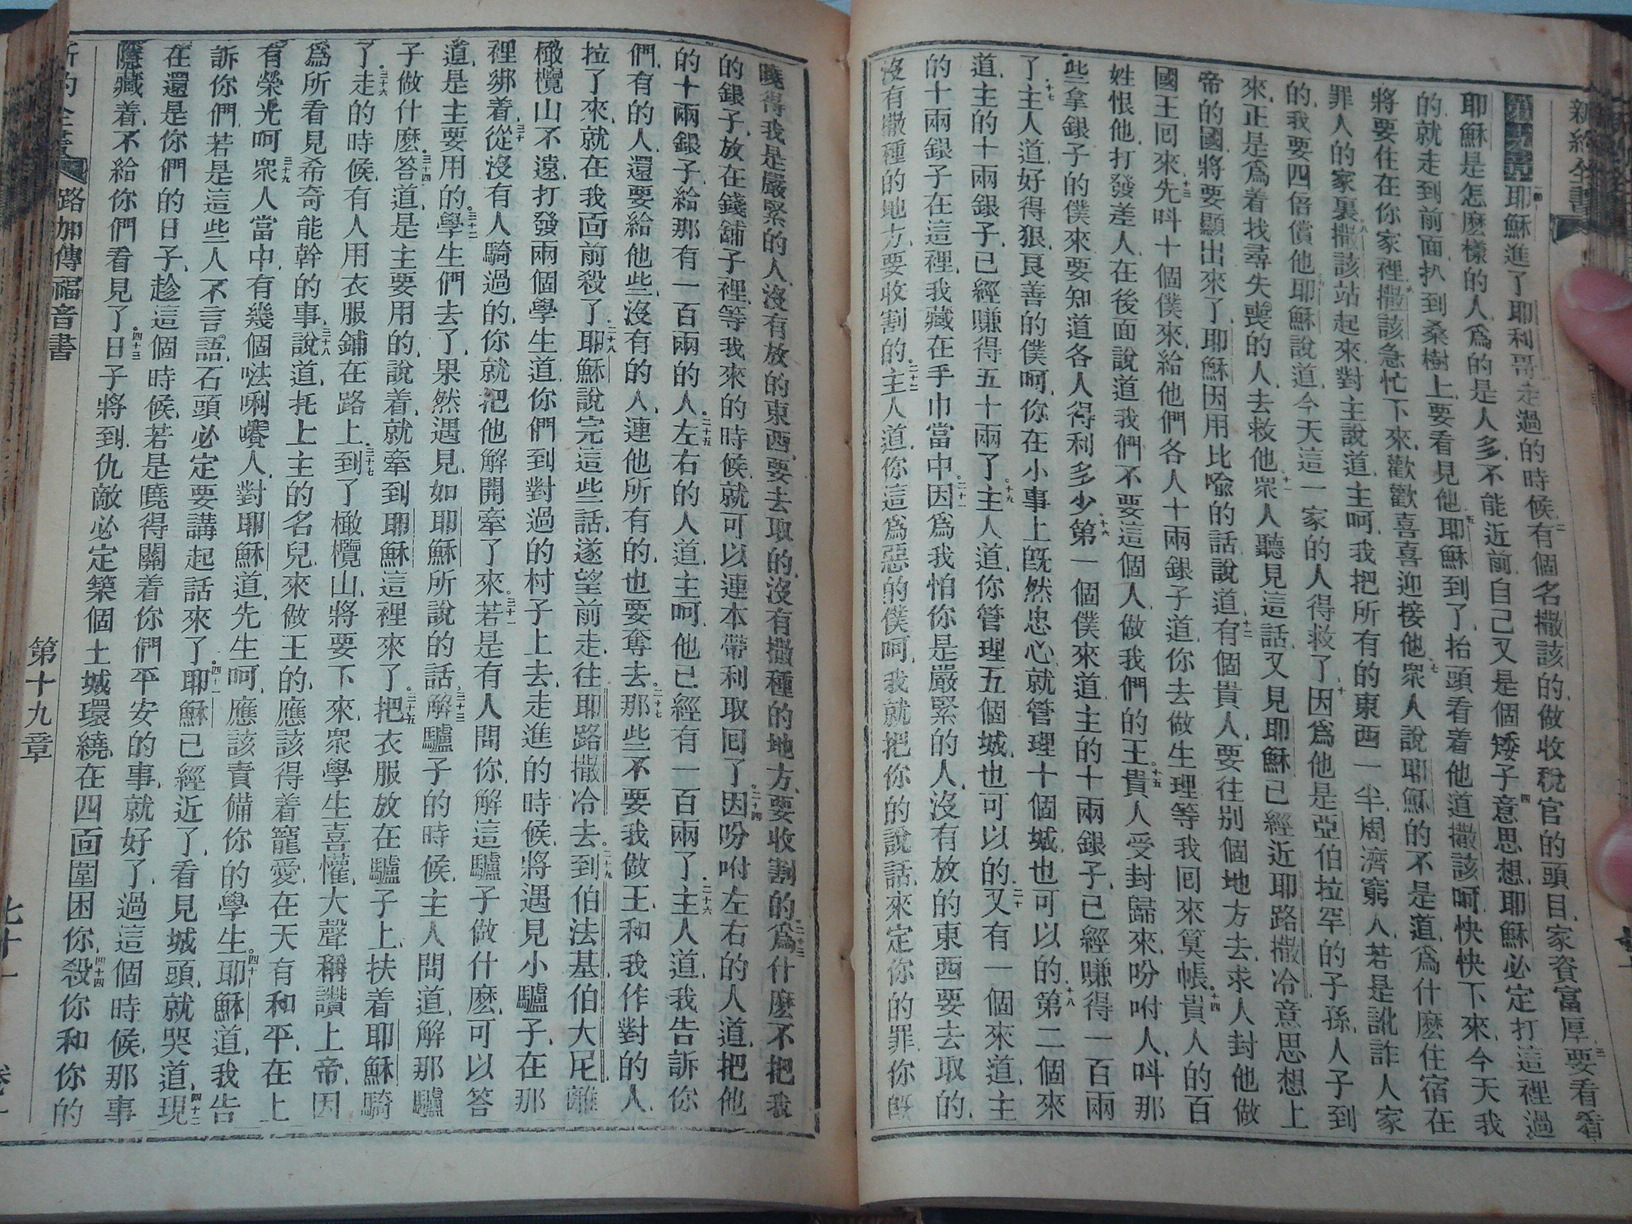 新約全書
耶穌進了耶利哥走過的時候有個名撒該的做收稅官的頭目家資富厚要看看
耶穌是怎麼樣的人爲的是人多不能近前自己又是個矮子意思想耶穌必定打這裡過
的就走到前面扒到桑樹上要看見他耶穌到了抬頭看着他道撒該呵快快下來今天我
將要住在你家裡撒該急忙下來歡歡喜喜迎接他衆人說耶穌的不是道爲什麼住宿在
罪人的家裏撒該站起來對主說道主呵我把所有的東西一半周濟窮人若是訛詐人家
的我要四倍償他耶穌說道今天這一家的人得救了因爲他是亞伯拉罕的子孫人子到
來正是爲着找尋失喪的人去救他衆人聽見這話又見耶穌已經近耶路撒冷意思想上
帝的國將要顯出來了耶穌因用比喻的話說道有個貴人要往別個地方去求人封他做
國王回來先呌十個僕來給他們各人十兩銀子道你去做生理等我回來算帳貴人的百
姓恨他打發差人在後面說道我們不要這個人做我們的王貴人受封歸來吩咐人呌那
些拿銀子的僕來要知道各人得利多少第一個僕來道主的十兩銀子已經賺得一百兩
了主人道好得狠良善的僕呵你在小事上旣然忠心就管理十個城也可以的第二個來
道主的十兩銀子已經賺得五十兩了主人道你管理五個城也可以的又有一個來道主
的十兩銀子在這裡我藏在手巾當中因爲我怕你是嚴緊的人沒有放的東西要去取的
沒有撒種的地方要收割的主人道你這爲惡的僕呵我就把你的說話來定你的罪你旣
曉得我是嚴緊的人沒有放的東西要去取的沒有撒種的地方要收割的爲什麼不把我
的銀子放在錢鋪子裡等我來的時候就可以連本帶利取回了因吩咐左右的人道把他
的十兩銀子給那有一百兩的人左右的人道主呵他已經有一百兩了主人道我告訴你
們有的人還要給他些沒有的人連他所有的也要奪去那些不要我做王和我作對的人
拉了來就在我面前殺了耶穌說完這些話遂望前走往耶路撒冷去到伯法基伯大尼離
橄欖山不遠打發兩個學生道你們到對過的村子上去走進的時候將遇見小驢子在那
裡綁着從沒有人騎過的你就把他解開牽了來若是有人問你解這驢子做什麼可以答
道是主要用的學生們去了果然遇見如耶穌所說的話解驢子的時候主人問道解那驢
子做什麼答道是主要用的說着就牽到耶穌這裡來了把衣服放在驢子上扶着耶穌騎
了走的時候有人用衣服鋪在路上到了橄欖山將要下來衆學生喜懽大聲稱讚上帝因
爲所看見希奇能幹的事說道托上主的名兒來做王的應該得着寵愛在天有和平在上
有榮光呵衆人當中有幾個𠵽唎㘔人對耶穌道先生呵應該責備你的學生耶穌道我告
訴你們若是這些人不言語石頭必定要講起話來了耶穌已經近了看見城頭就哭道現
在還是你們的日子趁這個時候若是曉得關着你們平安的事就好了過這個時候那事
隱藏着不給你們看見了日子將到仇敵必定築個土城環繞在四面圍困你殺你和你的
新約全書
路加傳福音書
第十九章
七十一